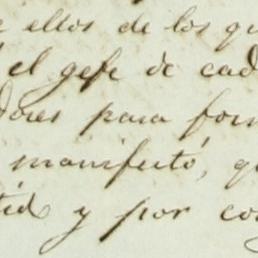 e ellos de los qu
el gefe de cad
dores para for
manifestó, q
tid y por co